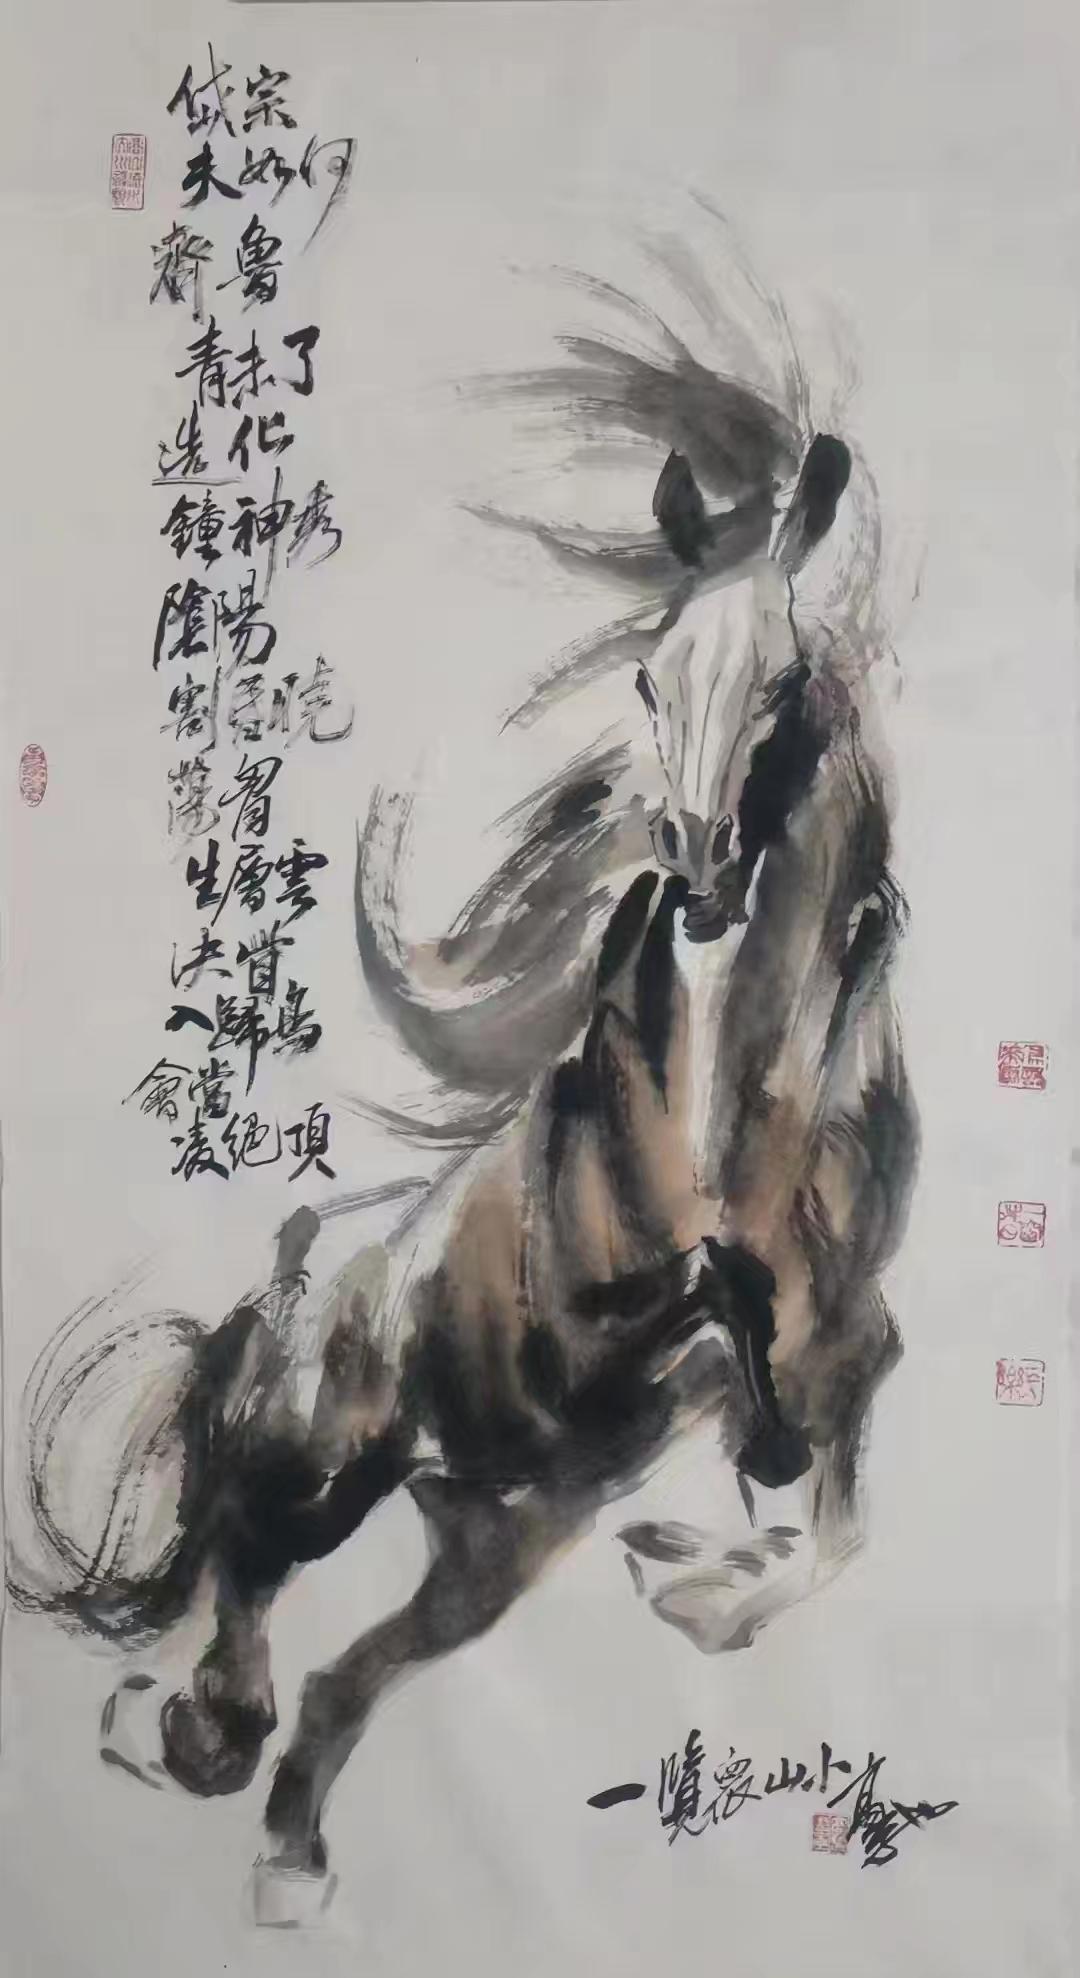 岱宗
夫如何
齊魯
青未了
造化
鐘神秀
陰陽
割昏曉
蕩胸
生層雲
決眥
入歸鳥
會當
凌絕頂
一覽眾山小